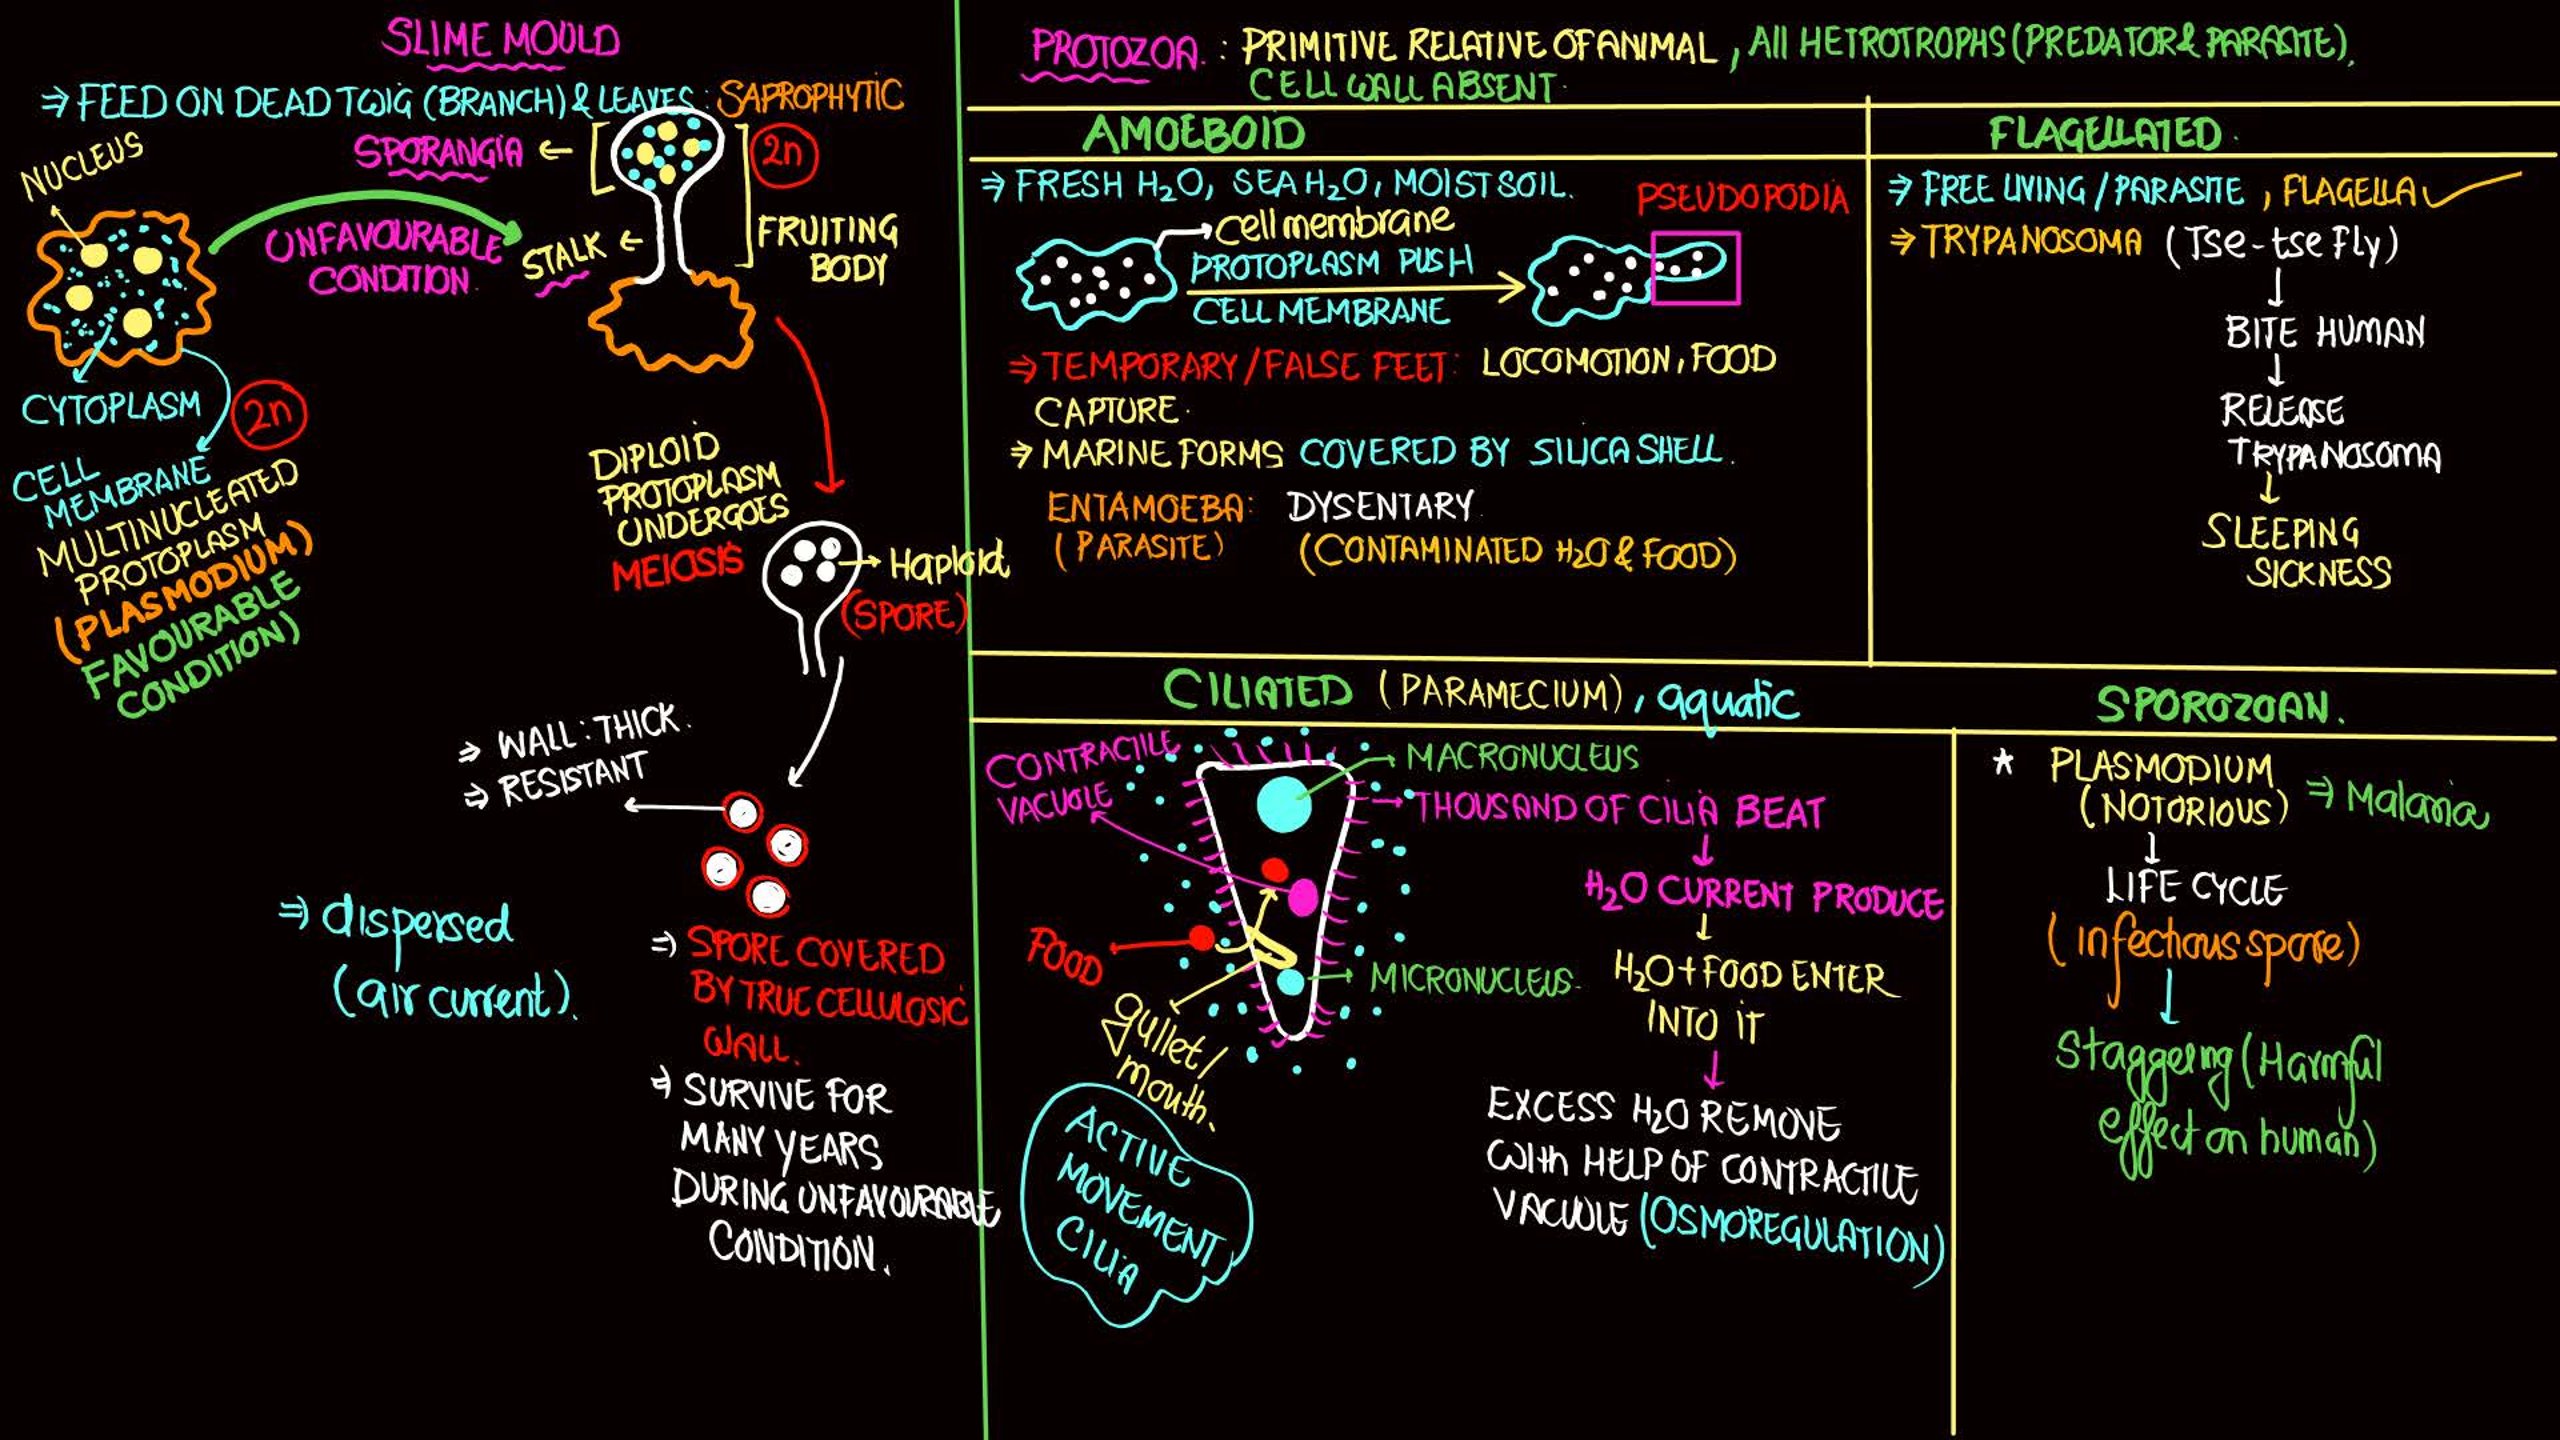 SLIME MOULD
⇒ FEED ON DEAD TWIG (BRANCH) & LEAVES : SAPROPHYTIC
NUCLEUS
SPORANGIA
2n
UNFAVOURABLE
CONDITION
STALK
FRUITING
BODY
CYTOPLASM
2n
CELL
MEMBRANE
MULTINUCLEATED
PROTOPLASM
(PLASMODIUM)
FAVOURABLE
CONDITION)
DIPLOID
PROTOPLASM
UNDERGOES
MEIOSIS
Haploid
(SPORE)
⇒ WALL : THICK.
⇒ RESISTANT
⇒ dispersed
(air current).
⇒ SPORE COVERED
BY TRUE CELLULOSIC
WALL.
⇒ SURVIVE FOR
MANY YEARS
DURING UNFAVOURABLE
CONDITION.
PROTOZOA. : PRIMITIVE RELATIVE OF ANIMAL, All HETROTROPHS (PREDATOR & PARASITE).
CELL WALL ABSENT.
AMOEBOID
⇒ FRESH H2O, SEA H2O, MOIST SOIL.
PSEUDOPODIA
Cell membrane
PROTOPLASM PUSH
CELL MEMBRANE
⇒ TEMPORARY / FALSE FEET : LOCOMOTION, FOOD
CAPTURE.
⇒ MARINE FORMS COVERED BY SILICA SHELL.
ENTAMOEBA : DYSENTARY
(PARASITE) (CONTAMINATED H2O & FOOD)
FLAGELLATED.
⇒ FREE LIVING / PARASITE, FLAGELLA
⇒ TRYPANOSOMA (Tse-tse fly)
BITE HUMAN
RELEASE
TRYPANOSOMA
SLEEPING
SICKNESS
CILIATED (PARAMECIUM), aquatic
CONTRACTILE
VACUOLE
MACRONUCLEUS
THOUSAND OF CILIA BEAT
H2O CURRENT PRODUCE
FOOD
MICRONUCLEUS
H2O + FOOD ENTER
INTO IT
gullet /
mouth.
EXCESS H2O REMOVE
With HELP OF CONTRACTILE
VACUOLE (OSMOREGULATION)
ACTIVE
MOVEMENT
CILIA
SPOROZOAN.
* PLASMODIUM
(NOTORIOUS) ⇒ Malaria
LIFE CYCLE
(infectious spore)
Staggering (Harmful
effect on human)